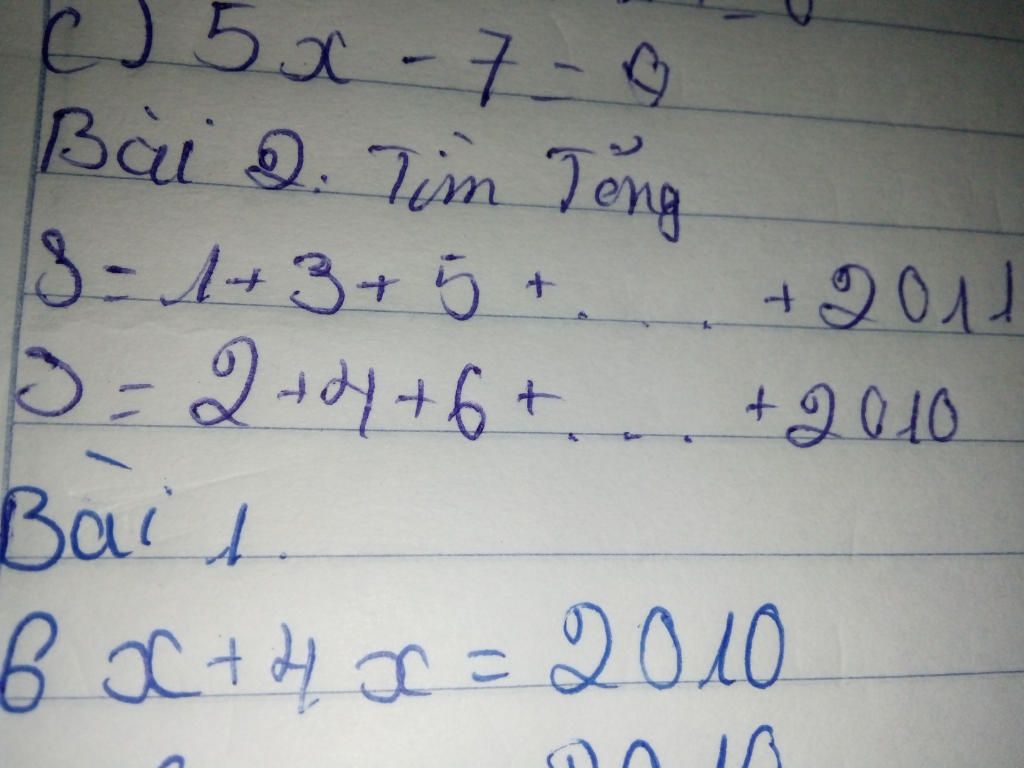 c) 5x - 7 = 0
Bài 2. Tìm Tổng
S = 1 + 3 + 5 + .... + 2011
S = 2 + 4 + 6 + .... + 2010
Bài 1.
6x + 4x = 2010